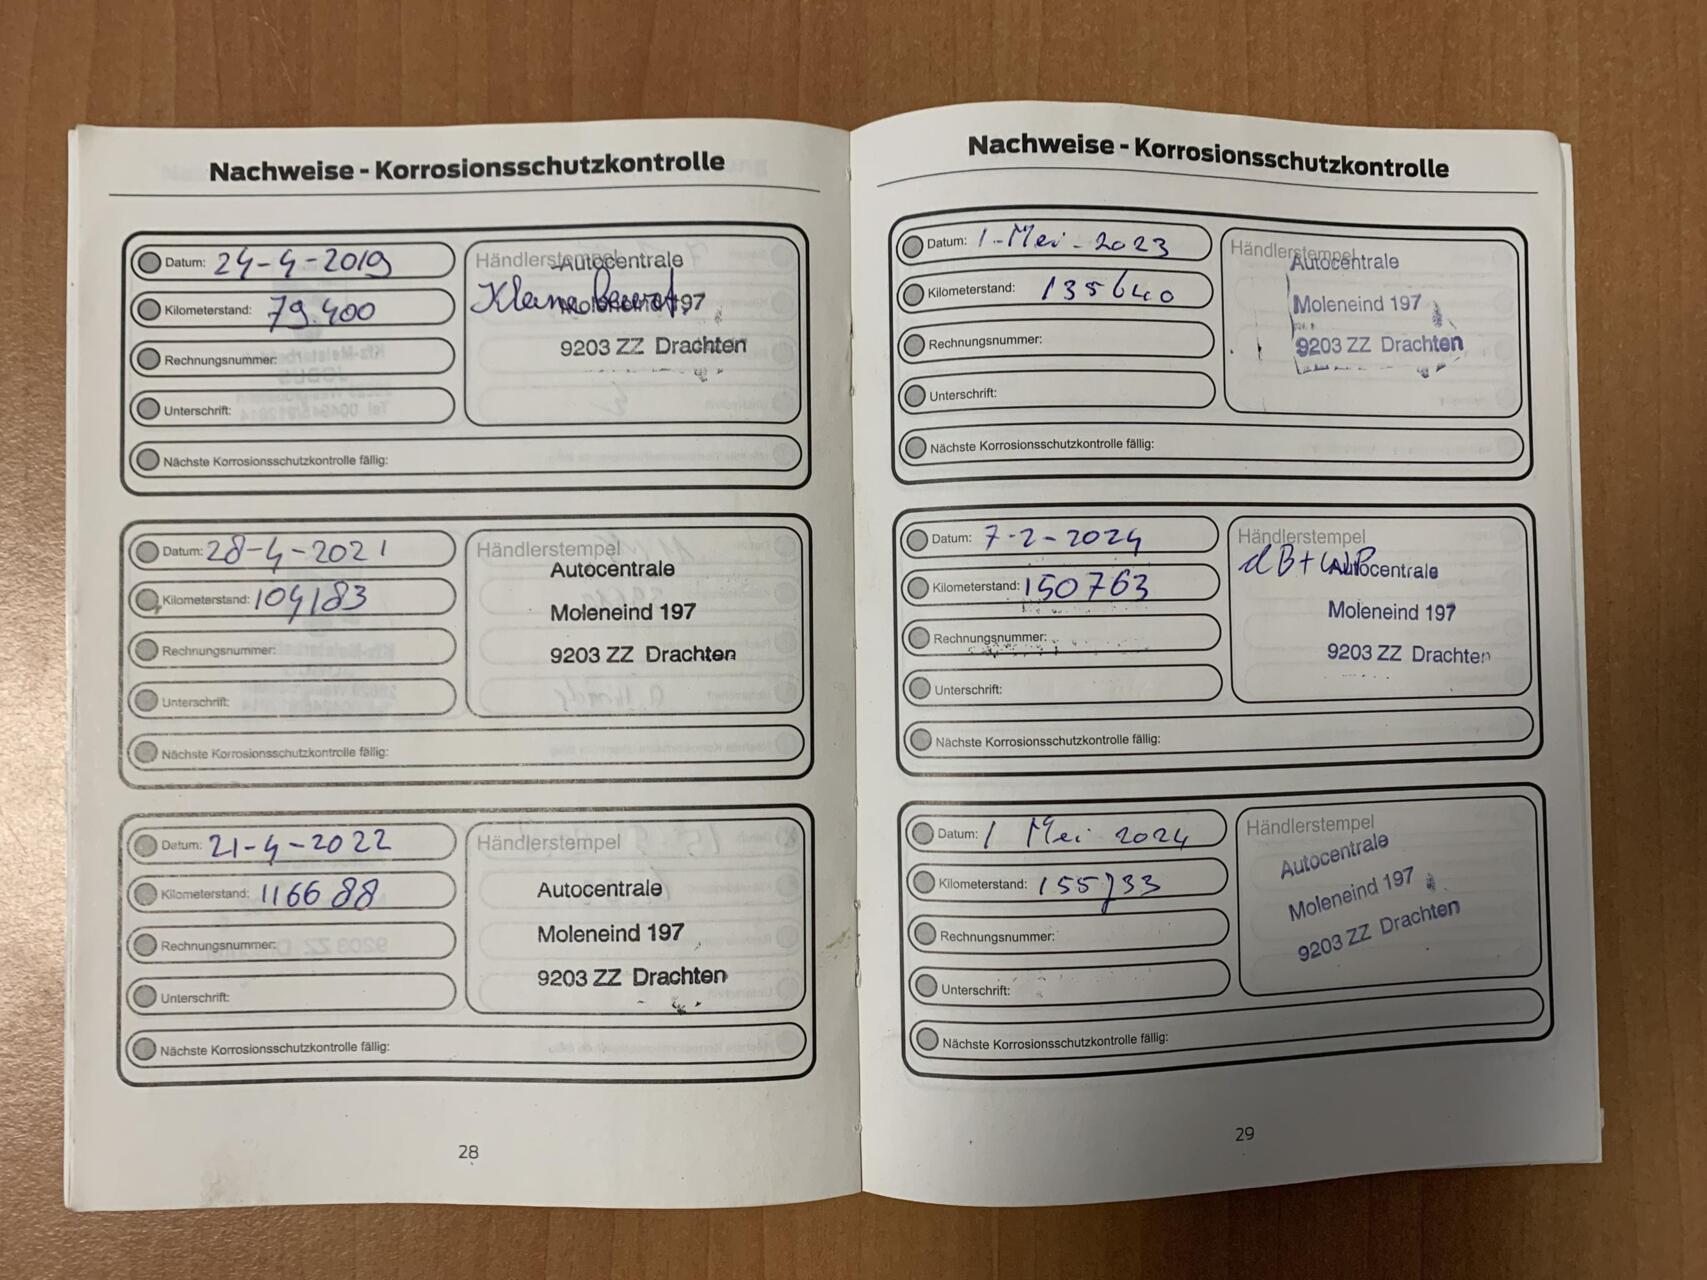 Nachweise - Korrosionsschutzkontrolle
Datum: 24-4-2019
Kilometerstand: 79.400
Rechnungsnummer:
Unterschrift:
Nächste Korrosionsschutzkontrolle fällig:
Händlerstempel
Autocentrale
Kleine beurt
Moleneind 197
9203 ZZ Drachten
Datum: 28-4-2021
Kilometerstand: 104183
Rechnungsnummer:
Unterschrift:
Nächste Korrosionsschutzkontrolle fällig:
Händlerstempel
Autocentrale
Moleneind 197
9203 ZZ Drachten
Datum: 21-4-2022
Kilometerstand: 116688
Rechnungsnummer:
Unterschrift:
Nächste Korrosionsschutzkontrolle fällig:
Händlerstempel
Autocentrale
Moleneind 197
9203 ZZ Drachten
28
Nachweise - Korrosionsschutzkontrolle
Datum: 1-Mei-2023
Kilometerstand: 135640
Rechnungsnummer:
Unterschrift:
Nächste Korrosionsschutzkontrolle fällig:
Händlerstempel
Autocentrale
Moleneind 197
9203 ZZ Drachten
Datum: 7-2-2024
Kilometerstand: 150763
Rechnungsnummer:
Unterschrift:
Nächste Korrosionsschutzkontrolle fällig:
Händlerstempel
dB+WP
Autocentrale
Moleneind 197
9203 ZZ Drachten
Datum: 1 Mei 2024
Kilometerstand: 155733
Rechnungsnummer:
Unterschrift:
Nächste Korrosionsschutzkontrolle fällig:
Händlerstempel
Autocentrale
Moleneind 197
9203 ZZ Drachten
29